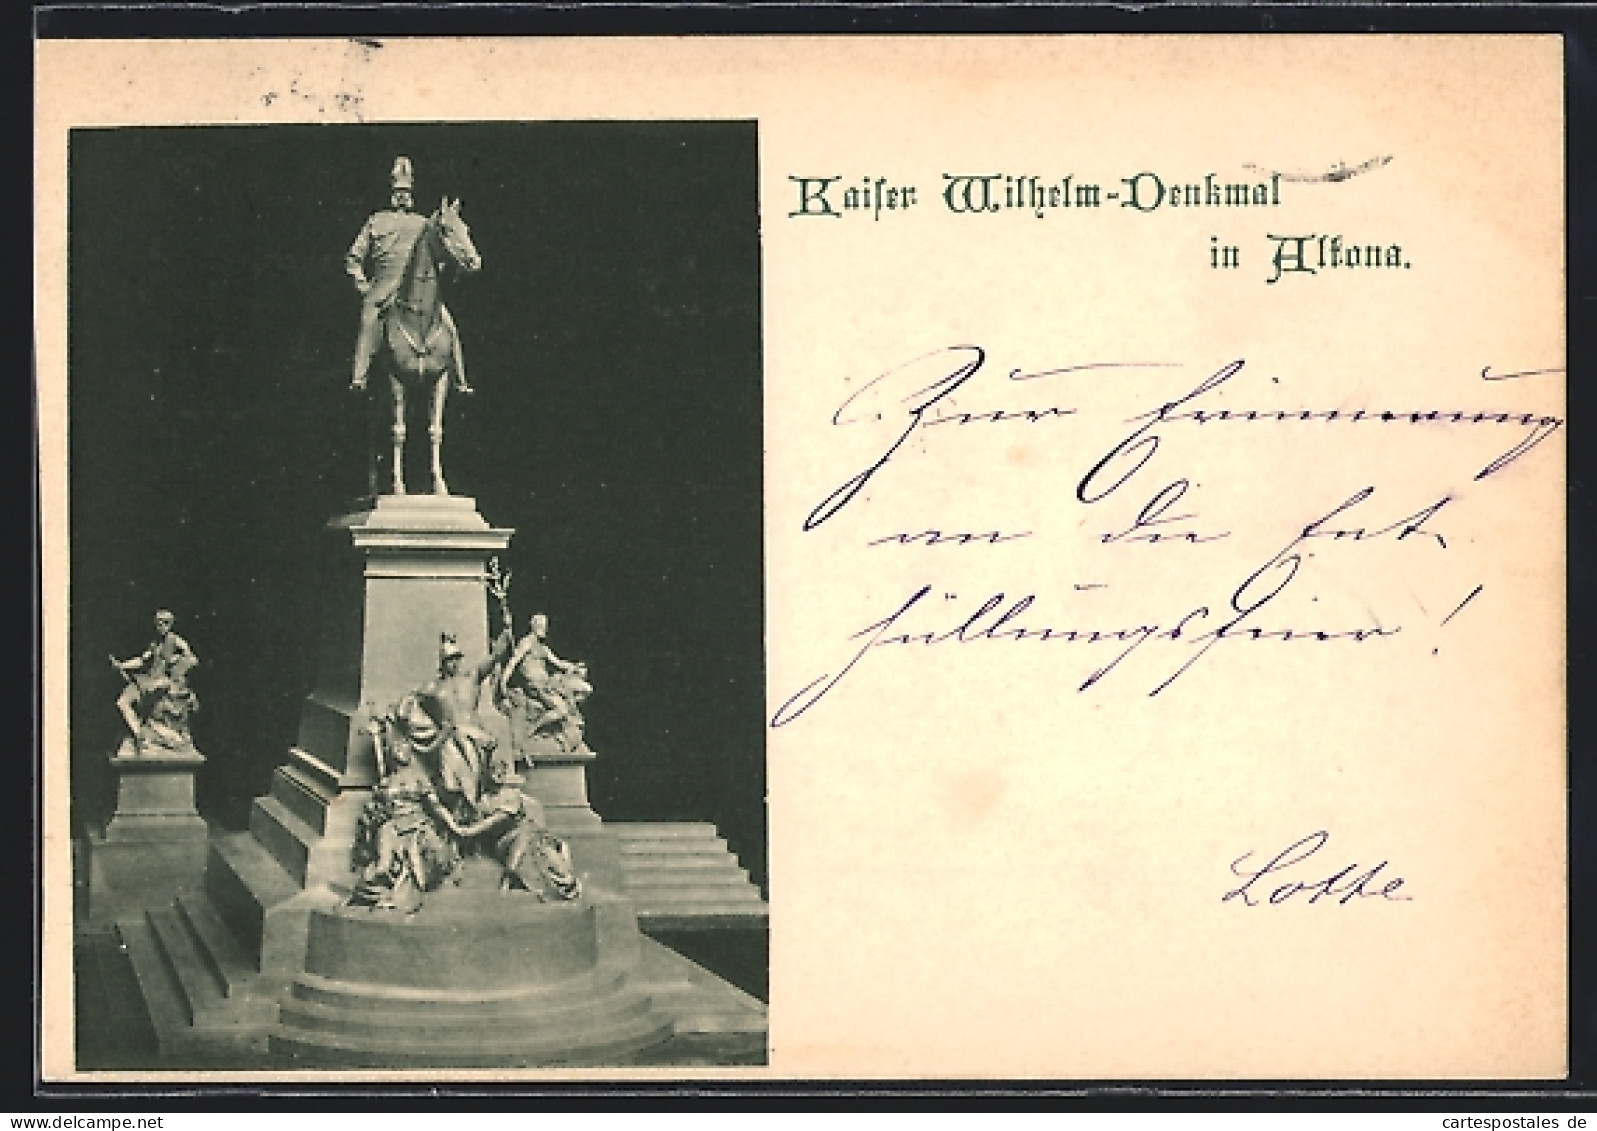 Kaiſer Wilhelm-Denkmal
in Altona.
Zur Erinnerung
an die Ent-
hüllungsfeier!
Lotte
cartespostales de